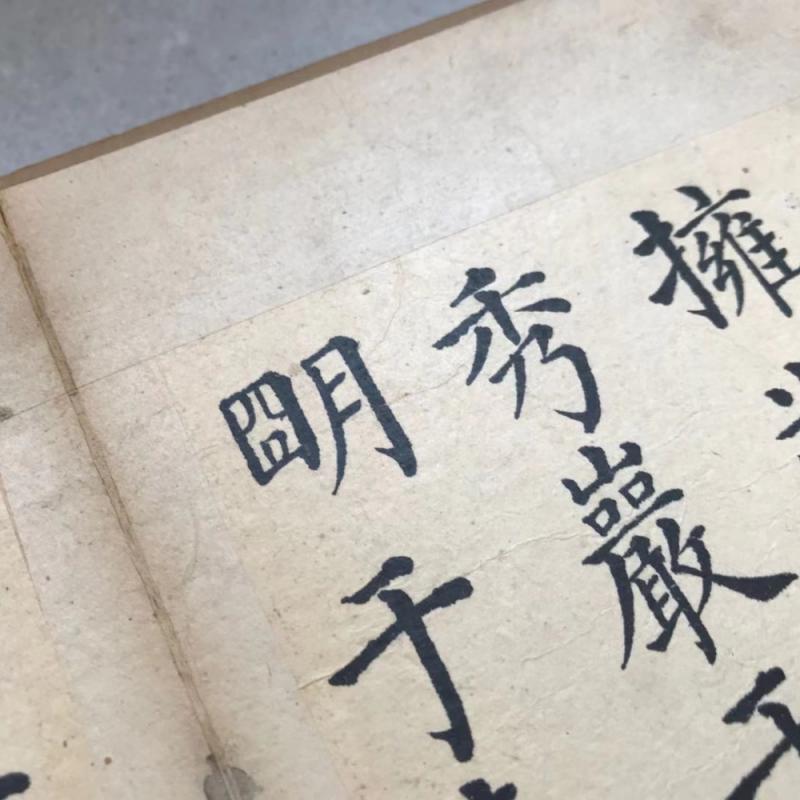 擁
秀巖
朙千